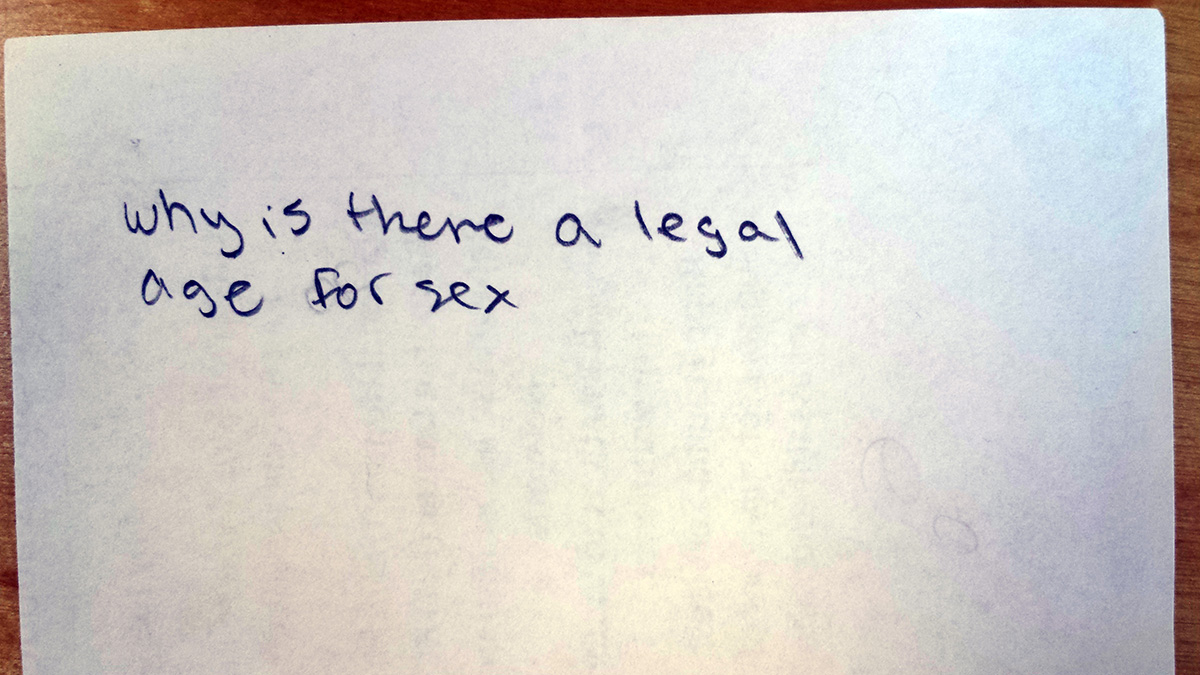 why is there a legal
age for sex